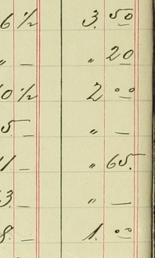 6 1/2 3. 50
" — " 20
0 1/2 2 00
5 — " —
1 — " 65.
3. — " —
8. — 1. 00